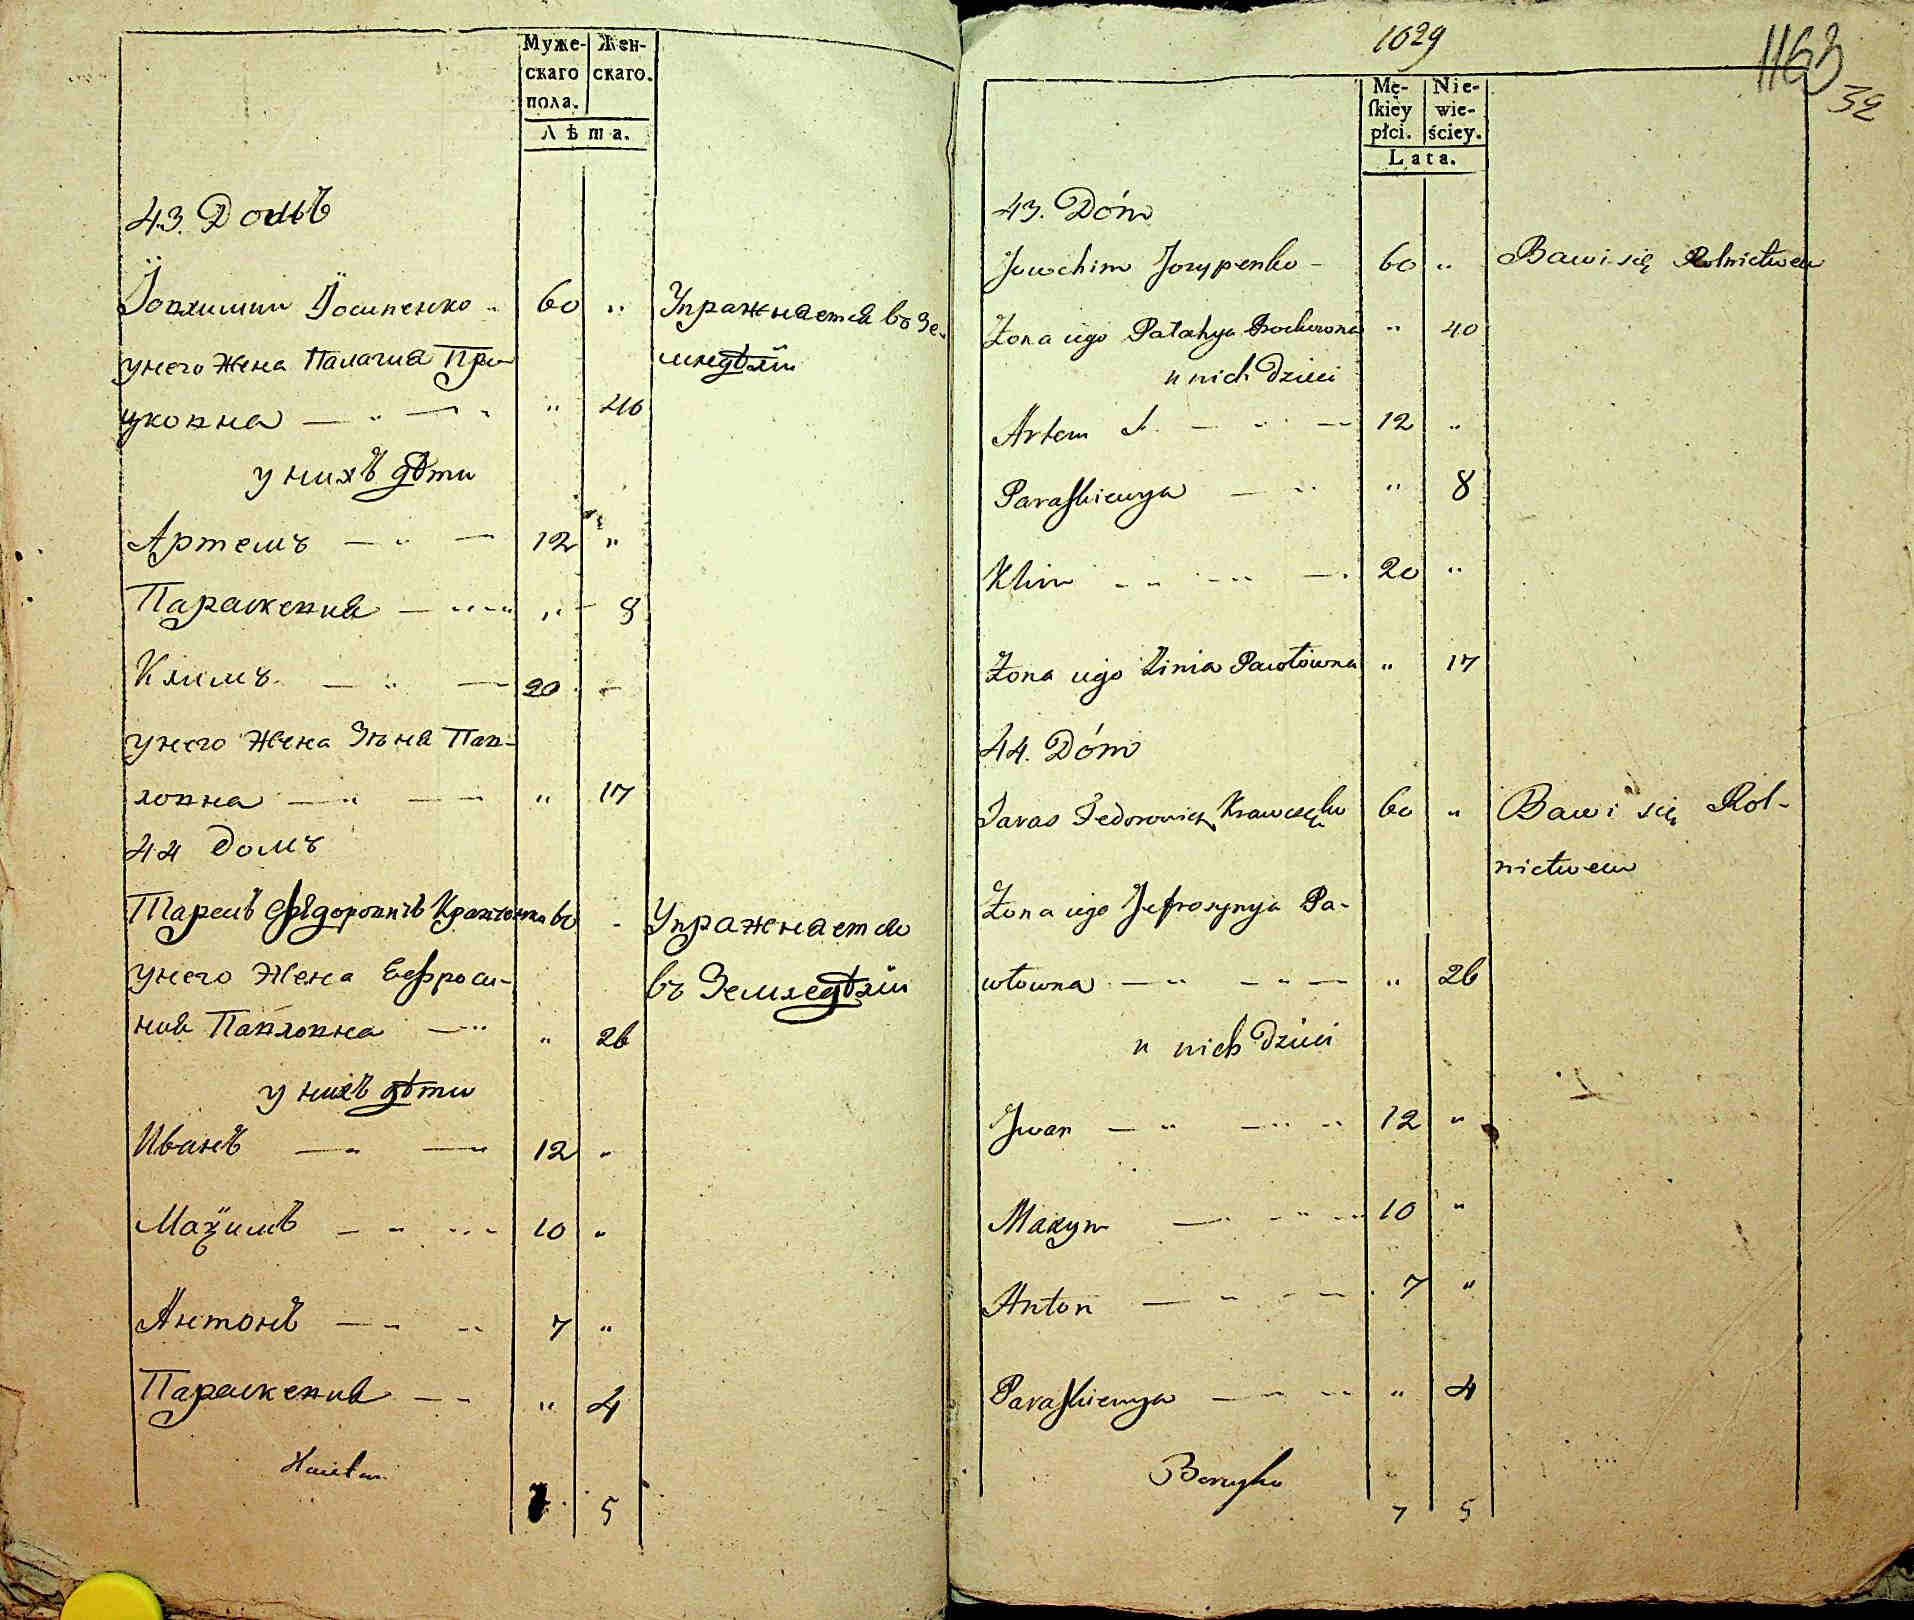 Муже- Жен-
скаго скаго.
пола.
Лѣта.
43. Домъ
Іовхимъ Іосипенко 60 "
Упражнается въ Зе-
унего Жена Палагия Про-
млѣдѣліи
цковна — " — " " 40
у нихъ дѣти
Артемъ — " — 12 "
Параскевия — " " " 8
Климъ — " — 20 "
унего Жена Зѣна Пав-
ловна — " — " " 17
44 Домъ
Тарасъ Ѳедоровичъ Кравченко 60 "
Упражнается
унего Жена Евфроси-
въ Земледѣліи
ния Павловна — " " 26
у нихъ дѣти
Иванъ — " — 12 "
Маѯимъ — " 10 "
Антонъ — " 7 "
Параскевия — — " 4
7 5
1029
1163
32
Mę- Nie-
ſkiey wie-
płci. ściey.
Lata.
43. Dóm
Jowchim Jozypenko — 60 " Bawi się Rolnictwem
Żona iego Palahya Prockowna " 40
u nich Dzieci
Artem — " — 12 "
Paraſkiewya — " " 8
Klim — " — 20 "
Żona iego Zinia Pawłowna " 17
44. Dóm
Taras Fedorowicz Krawczęko 60 " Bawi się Rol-
nictwem
Żona iego Jefrosynya Pa-
włowna — " — " — " 26
u nich Dzieci
Jwan — " — " 12 "
Maxym — " — " 10 "
Anton — " — 7 "
Paraſkiewya — " — " 4
7 5